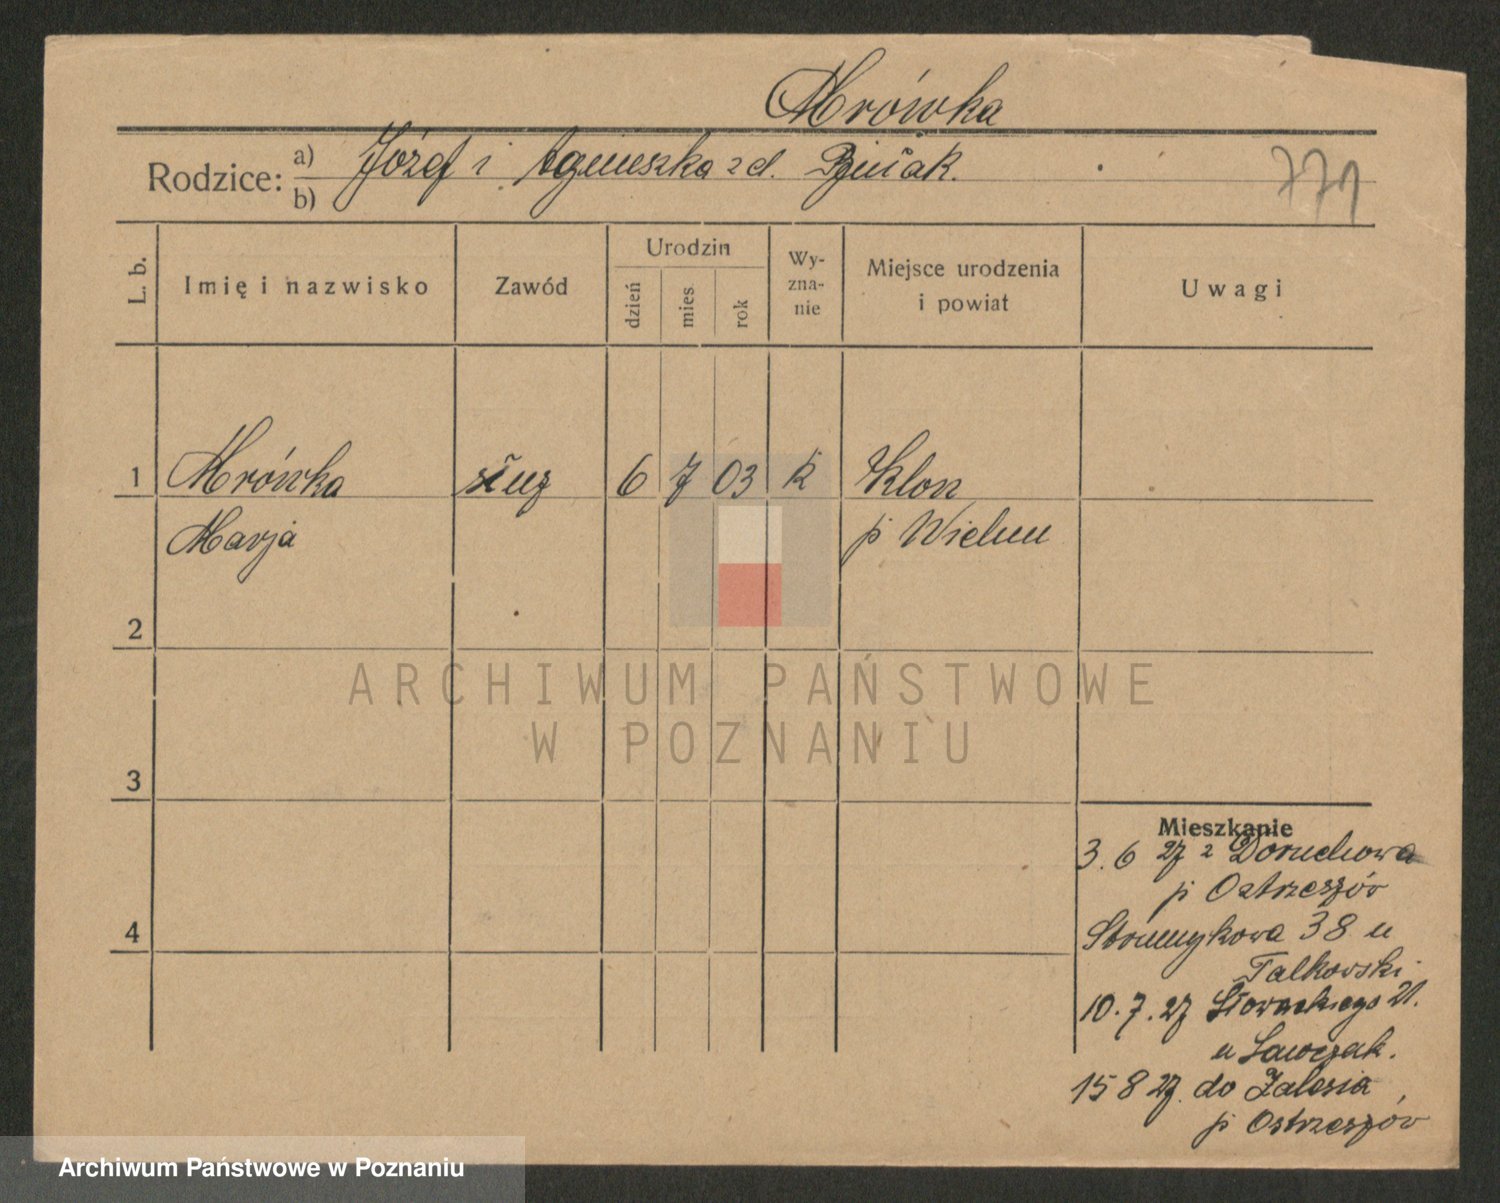 Mrówka
Rodzice: a) Józef i Agnieszka z d.
b)
771
L. b.
Imię i nazwisko
Zawód
Urodzin
dzień
mies
rok
Wy-
zna-
nie
Miejsce urodzenia
i powiat
Uwagi
1 Mrówka służ 6 7 03 k Klon
Marja p Wieluń
2
3
4
Mieszkanie
3. 6 27 z Doruchowa
p Ostrzeszów
Strumykowa 38 u
Talkowski
10. 7. 27 Słowackiego 21.
u Ławczak.
15 8 27. do Zalesia
p Ostrzeszów
ARCHIWUM PAŃSTWOWE
W POZNANIU
Archiwum Państwowe w Poznaniu